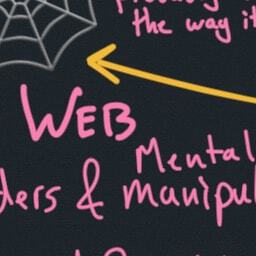 the way it
WEB
Mental
ders & manipul